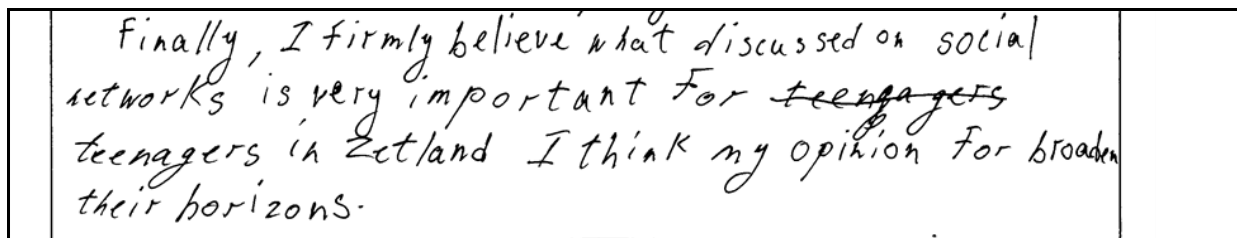 Finally, I firmly believe what discussed on social
networks is very important for teengagers
teenagers in Zetland I think my opinion for broaden
their horizons.